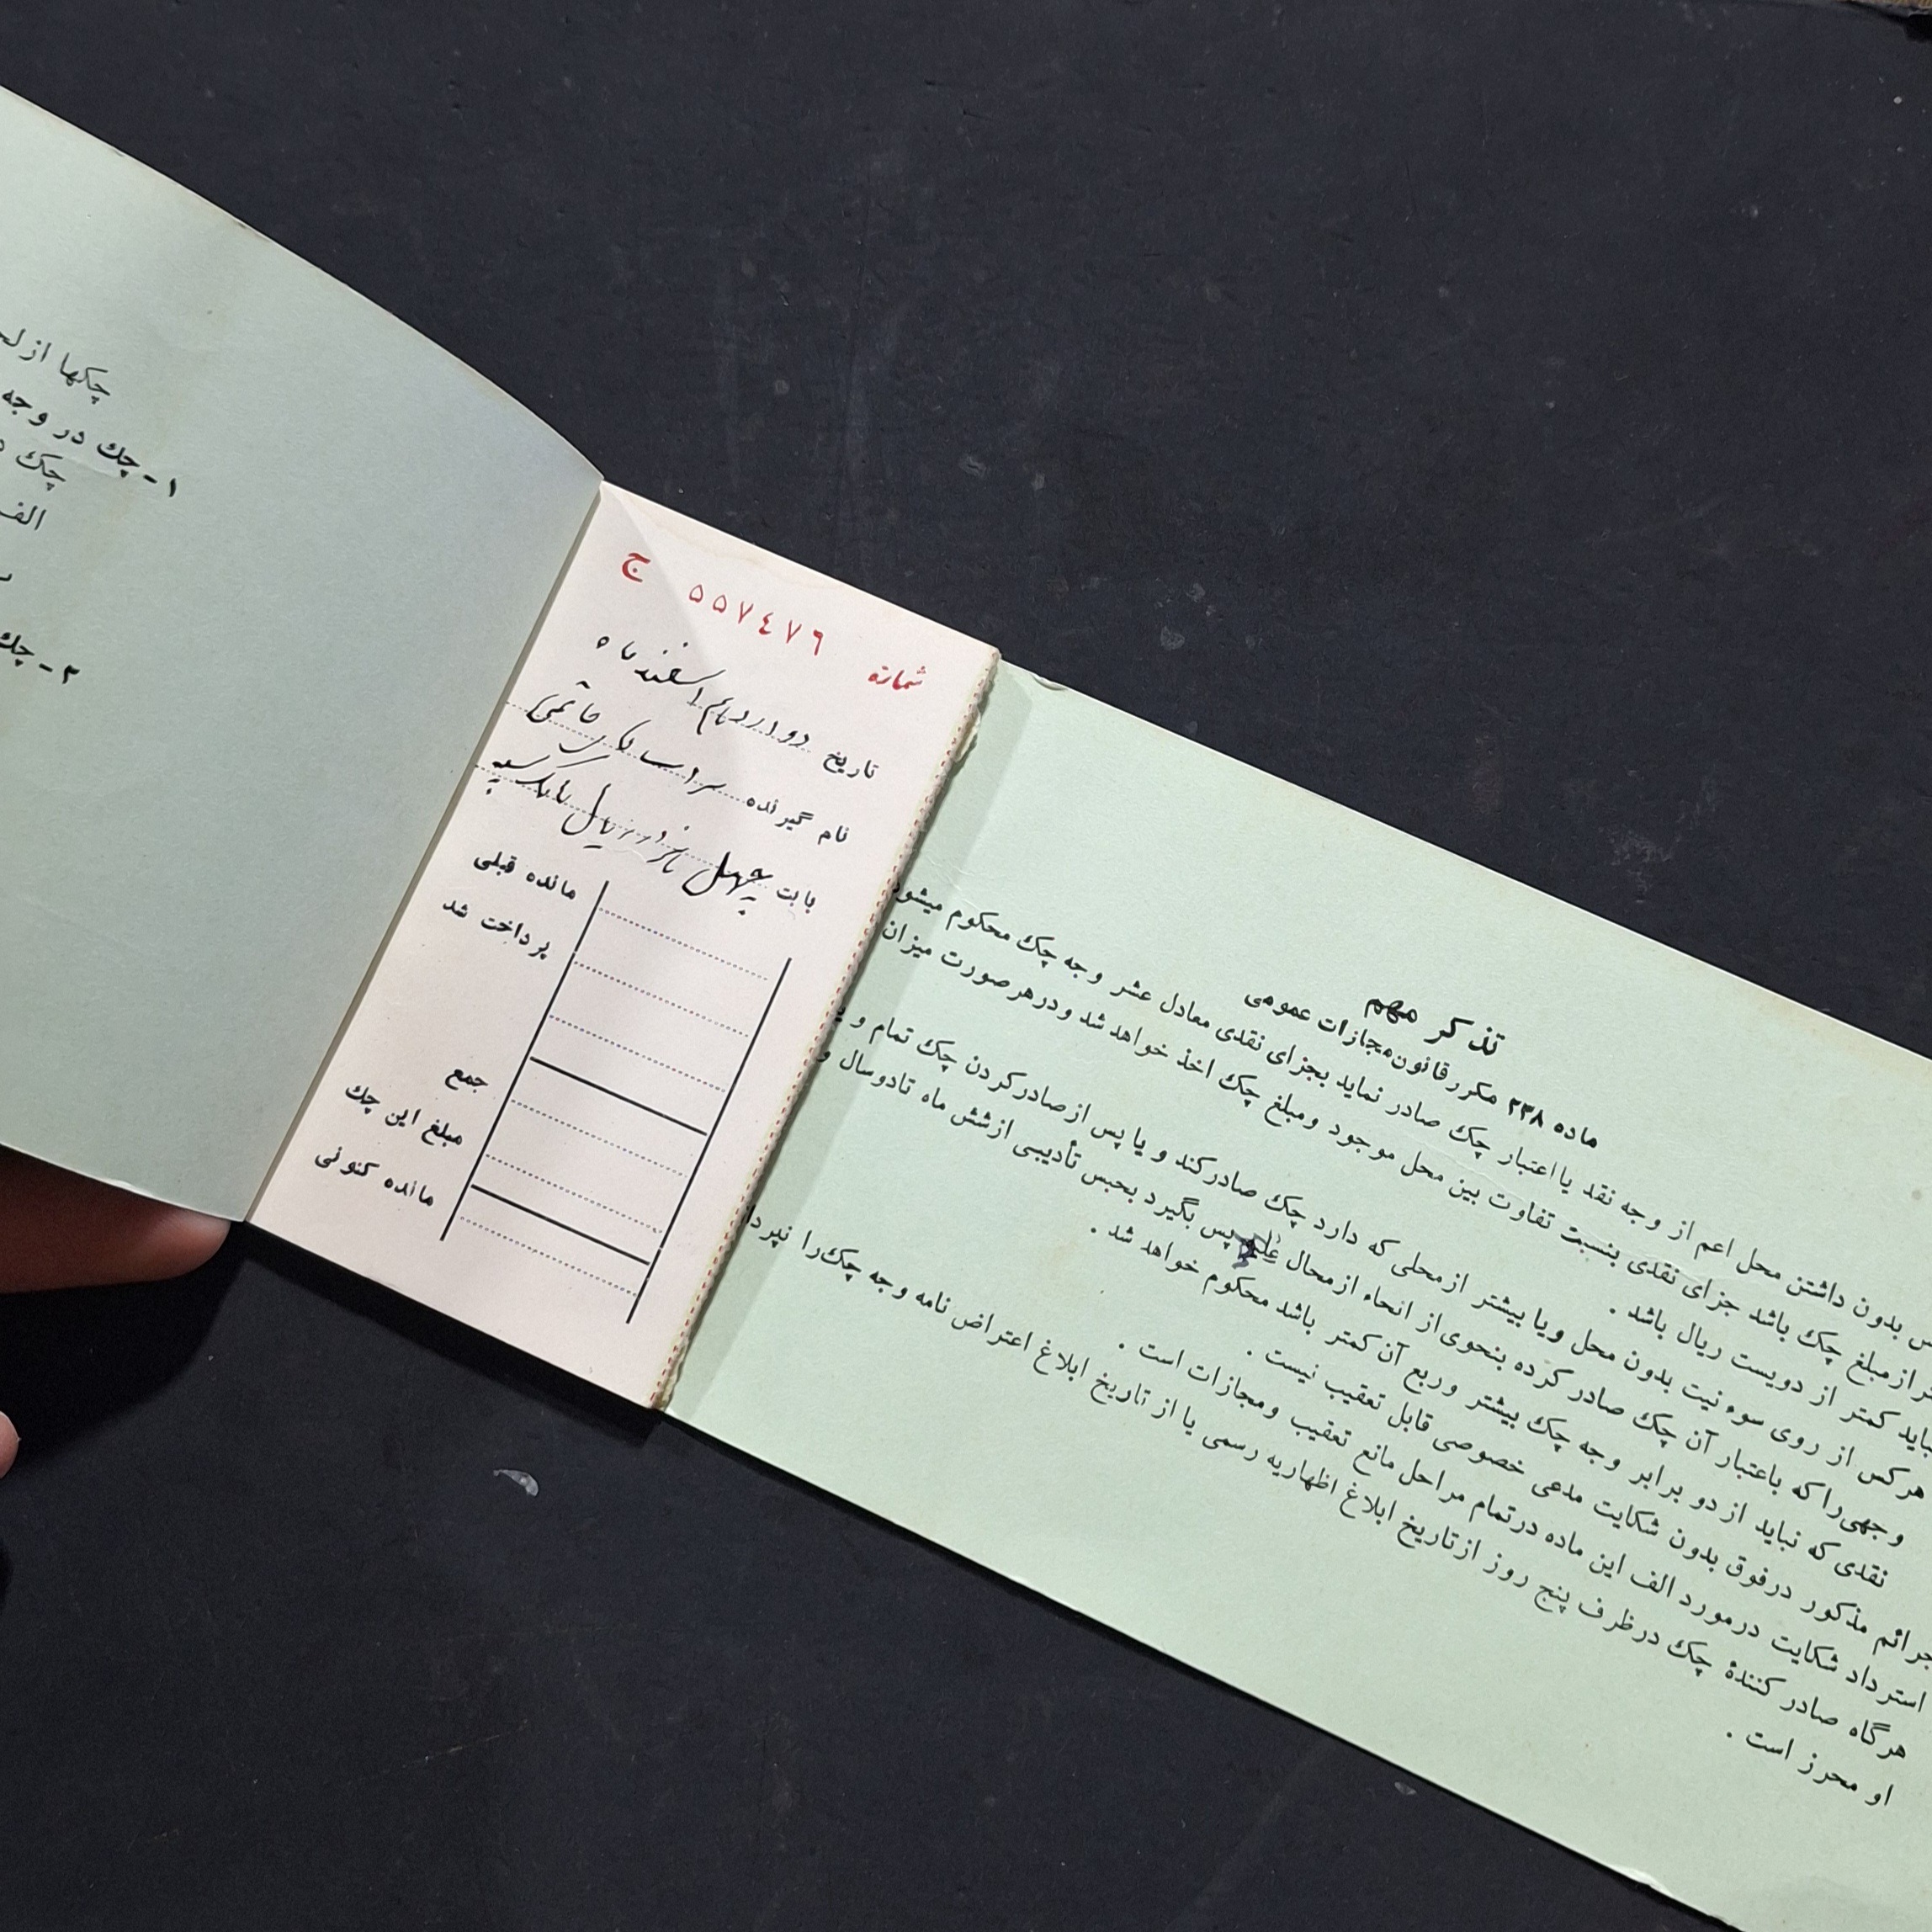 چکها از
۱ - چك در وجه
چك
الف
۲ - چك
ج ۵۵۷٤۷۶ شماره
تاریخ دوازدهم اسفند ماه
نام گیرنده
بابت چهل هزار ریال
مانده قبلی
پرداخت شد
جمع
مبلغ این چك
مانده کنونی
تذکر مهم
ماده ۲۳۸ مکرر قانون مجازات عمومی
بدون داشتن محل اعم از وجه نقد یا اعتبار چك صادر نماید بجزای نقدی معادل عشر وجه چك محکوم میشود
از مبلغ چك باشد جزای نقدی بنسبت تفاوت بین محل موجود و مبلغ چك اخذ خواهد شد و در هر صورت میزان
نباید کمتر از دویست ریال باشد .
هر کس از روی سوء نیت بدون محل و یا بیشتر از محلی که دارد چك صادر کند و یا پس از صادر کردن چك تمام و
وجهی را که باعتبار آن چك صادر کرده بنحوی از انحاء از محال علیه پس بگیرد بحبس تأدیبی از شش ماه تا دو سال و
نقدی که نباید از دو برابر وجه چك بیشتر و ربع آن کمتر باشد محکوم خواهد شد .
جرائم مذکور در فوق بدون شکایت مدعی خصوصی قابل تعقیب نیست .
استرداد شکایت در مورد الف این ماده در تمام مراحل مانع تعقیب و مجازات است .
هر گاه صادر کنندهٔ چك در ظرف پنج روز از تاریخ ابلاغ اظهاریه رسمی یا از تاریخ ابلاغ اعتراض نامه وجه چك را نپرد
او محرز است .